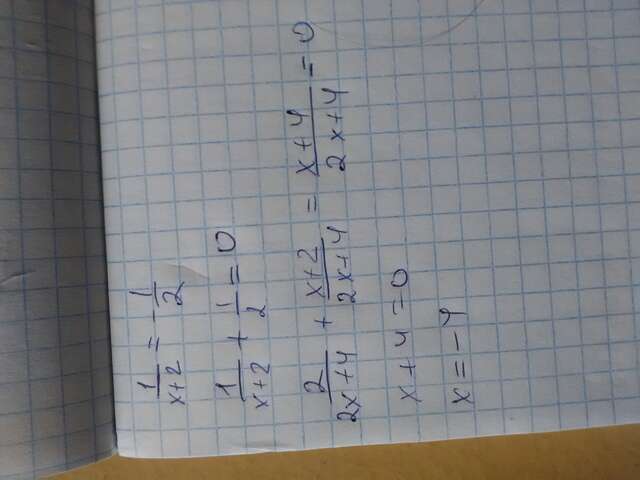 1/(x+2) = -1/2
1/(x+2) + 1/2 = 0
2/(2x+4) + (x+2)/(2x+4) = (x+4)/(2x+4) = 0
x+4=0
x=-4